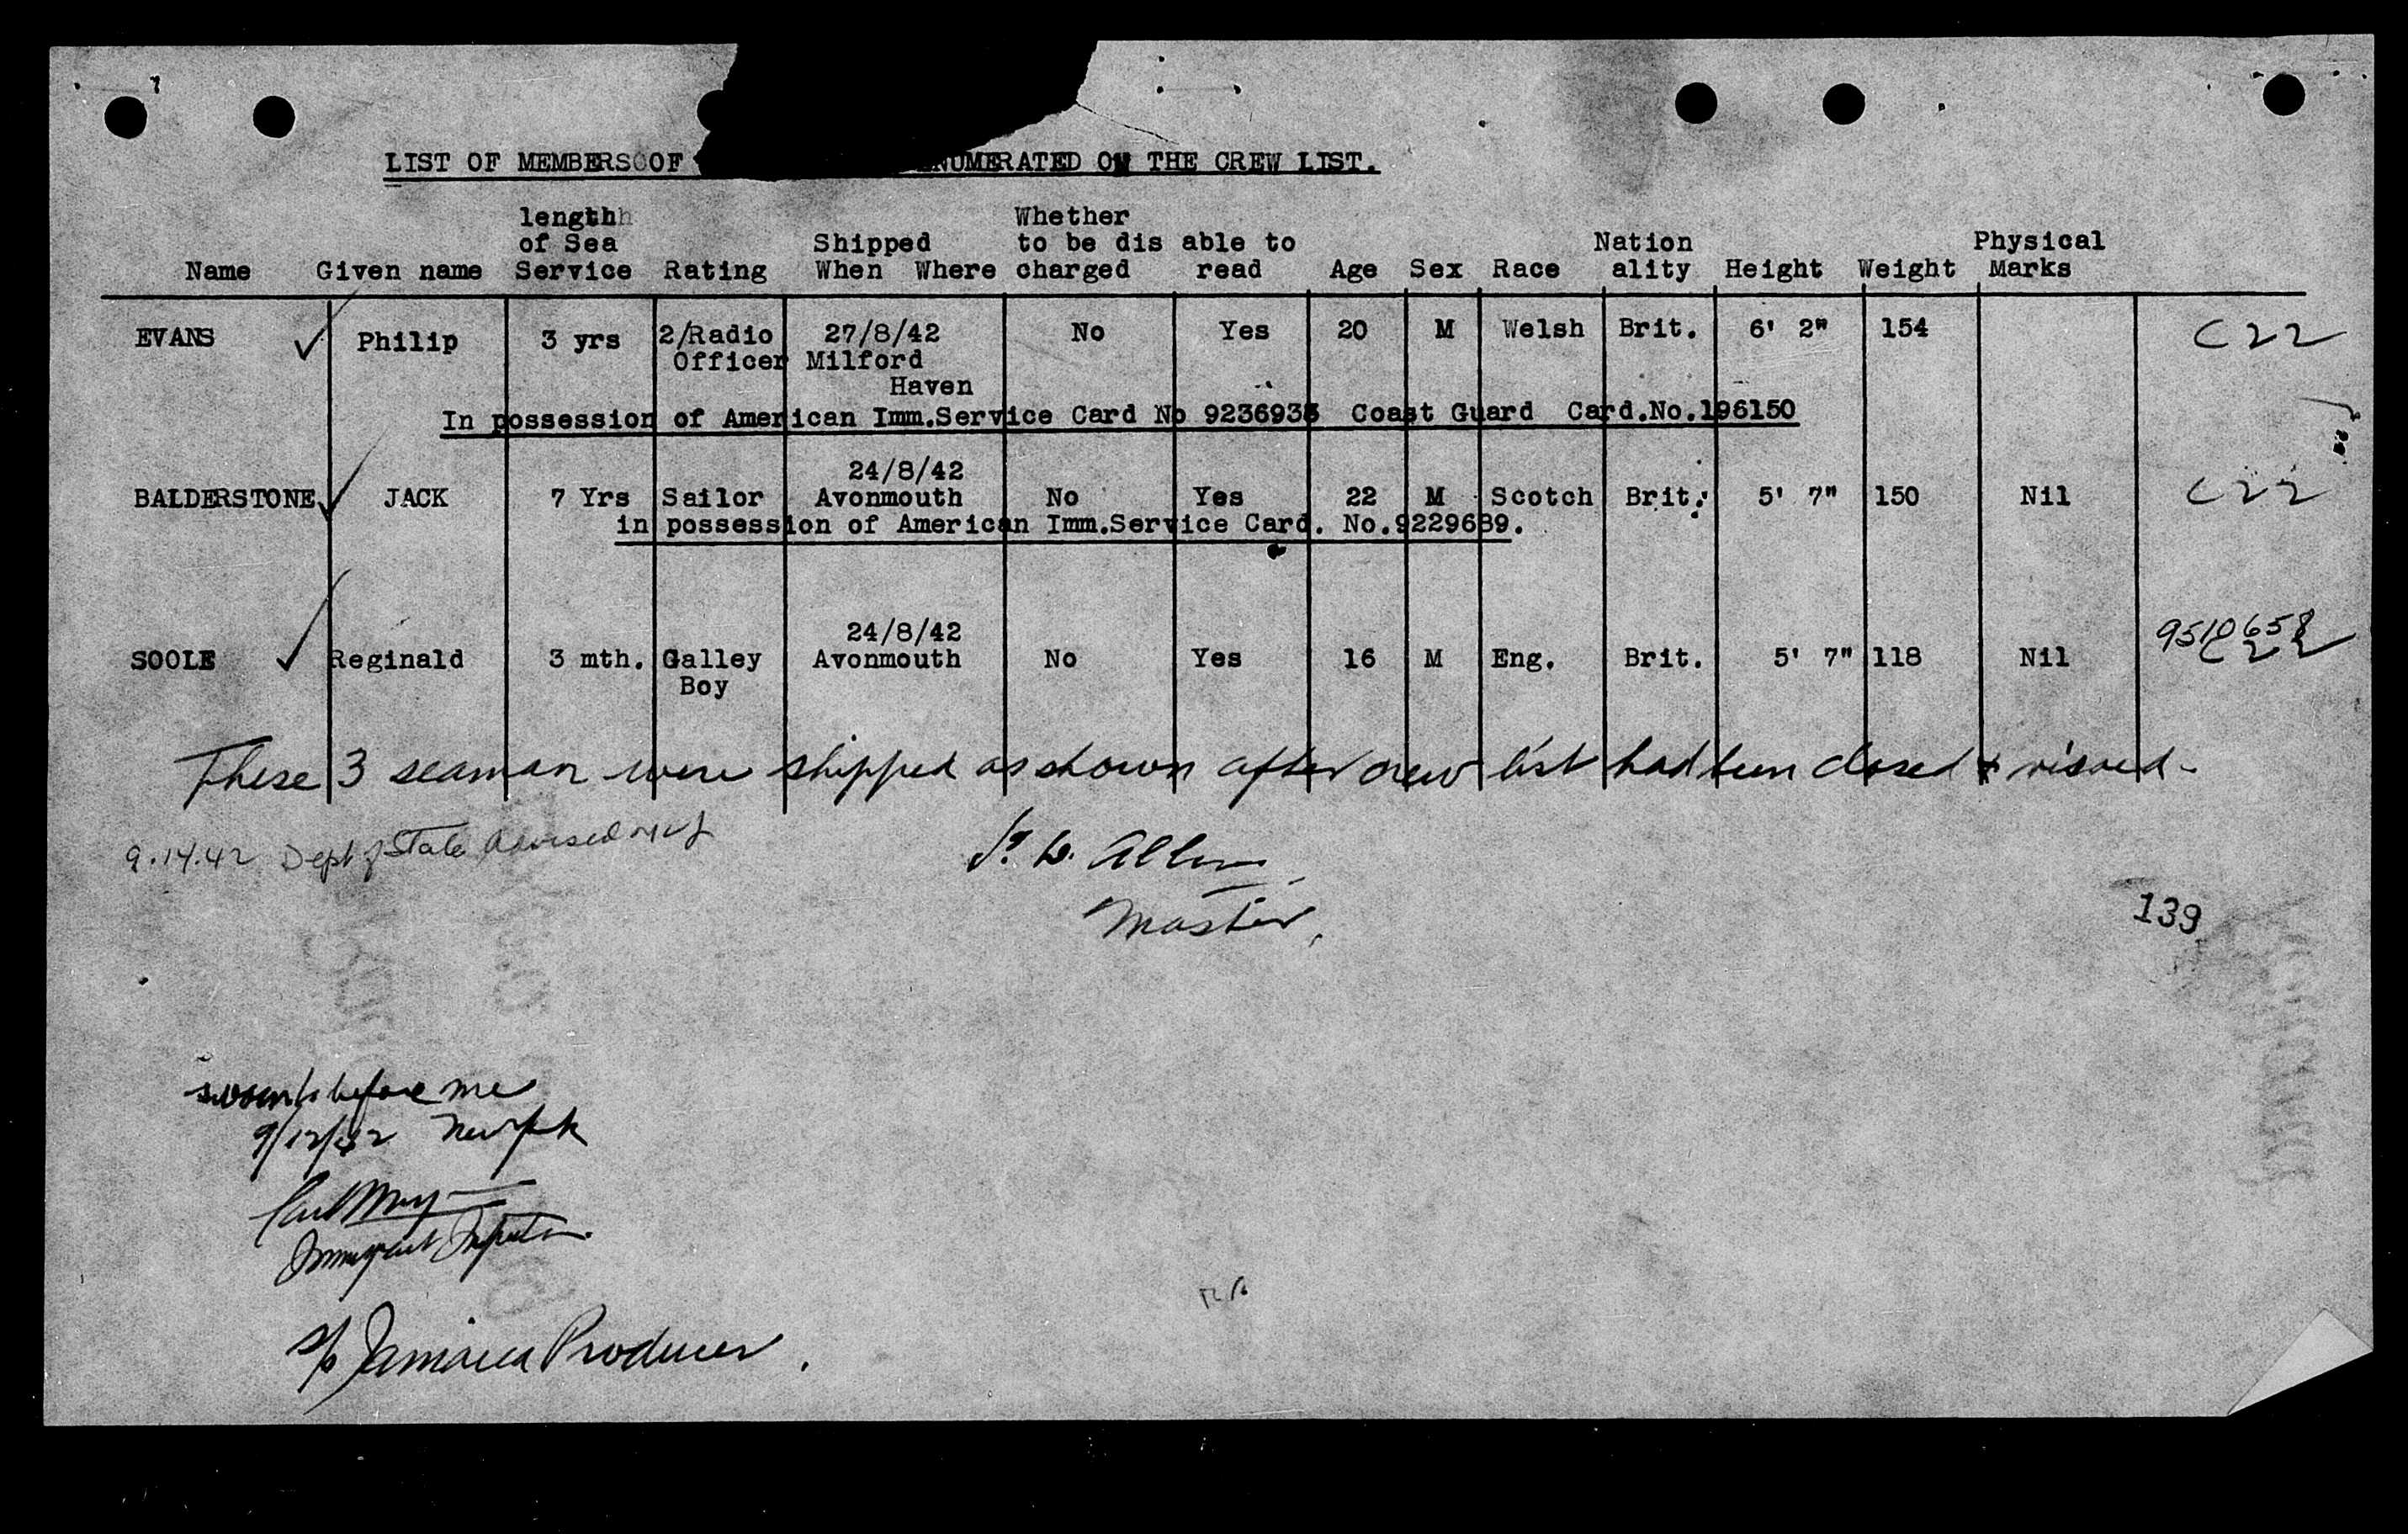 LIST OF MEMBERS OF ENUMERATED ON THE CREW LIST.
Name Given name length of Sea Service Rating Shipped When Where Whether to be dis charged able to read Age Sex Race Nation ality Height Weight Physical Marks
EVANS Philip 3 yrs 2/Radio Officer 27/8/42 Milford Haven No Yes 20 M Welsh Brit. 6' 2" 154 C22
In possession of American Imm.Service Card No 9236933 Coast Guard Card.No.196150
BALDERSTONE JACK 7 Yrs Sailor 24/8/42 Avonmouth No Yes 22 M Scotch Brit. 5' 7" 150 Nil C22
in possession of American Imm.Service Card. No.9229689.
SOOLE Reginald 3 mth. Galley Boy 24/8/42 Avonmouth No Yes 16 M Eng. Brit. 5' 7" 118 Nil 9510658
These 3 seaman were shipped as shown after crew list had been closed & visaed-
9.14.42 Dept of State Advised
Allen
Master,
139
sworn to before me
9/12/42 New York
Immigrant Inspector.
s/s Jamaica Producer.